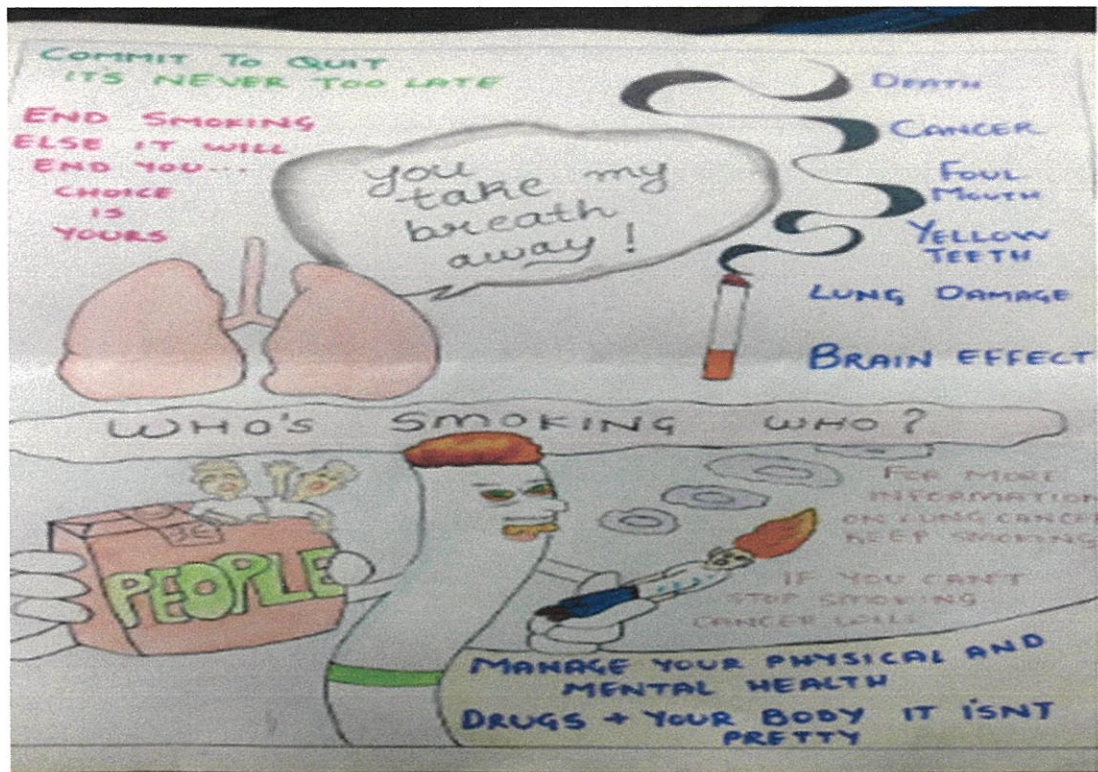 COMMIT TO QUIT
ITS NEVER TOO LATE
END SMOKING
ELSE IT WILL
END YOU...
CHOICE
IS
YOURS
you
take my
breath
away!
DEATH
CANCER
FOUL
MOUTH
YELLOW
TEETH
LUNG DAMAGE
BRAIN EFFECT
WHO'S SMOKING WHO?
PEOPLE
FOR MORE
INFORMATION
ON LUNG CANCER
KEEP SMOKING
IF YOU CAN'T
STOP SMOKING
CANCER WILL
MANAGE YOUR PHYSICAL AND
MENTAL HEALTH
DRUGS + YOUR BODY IT ISNT
PRETTY